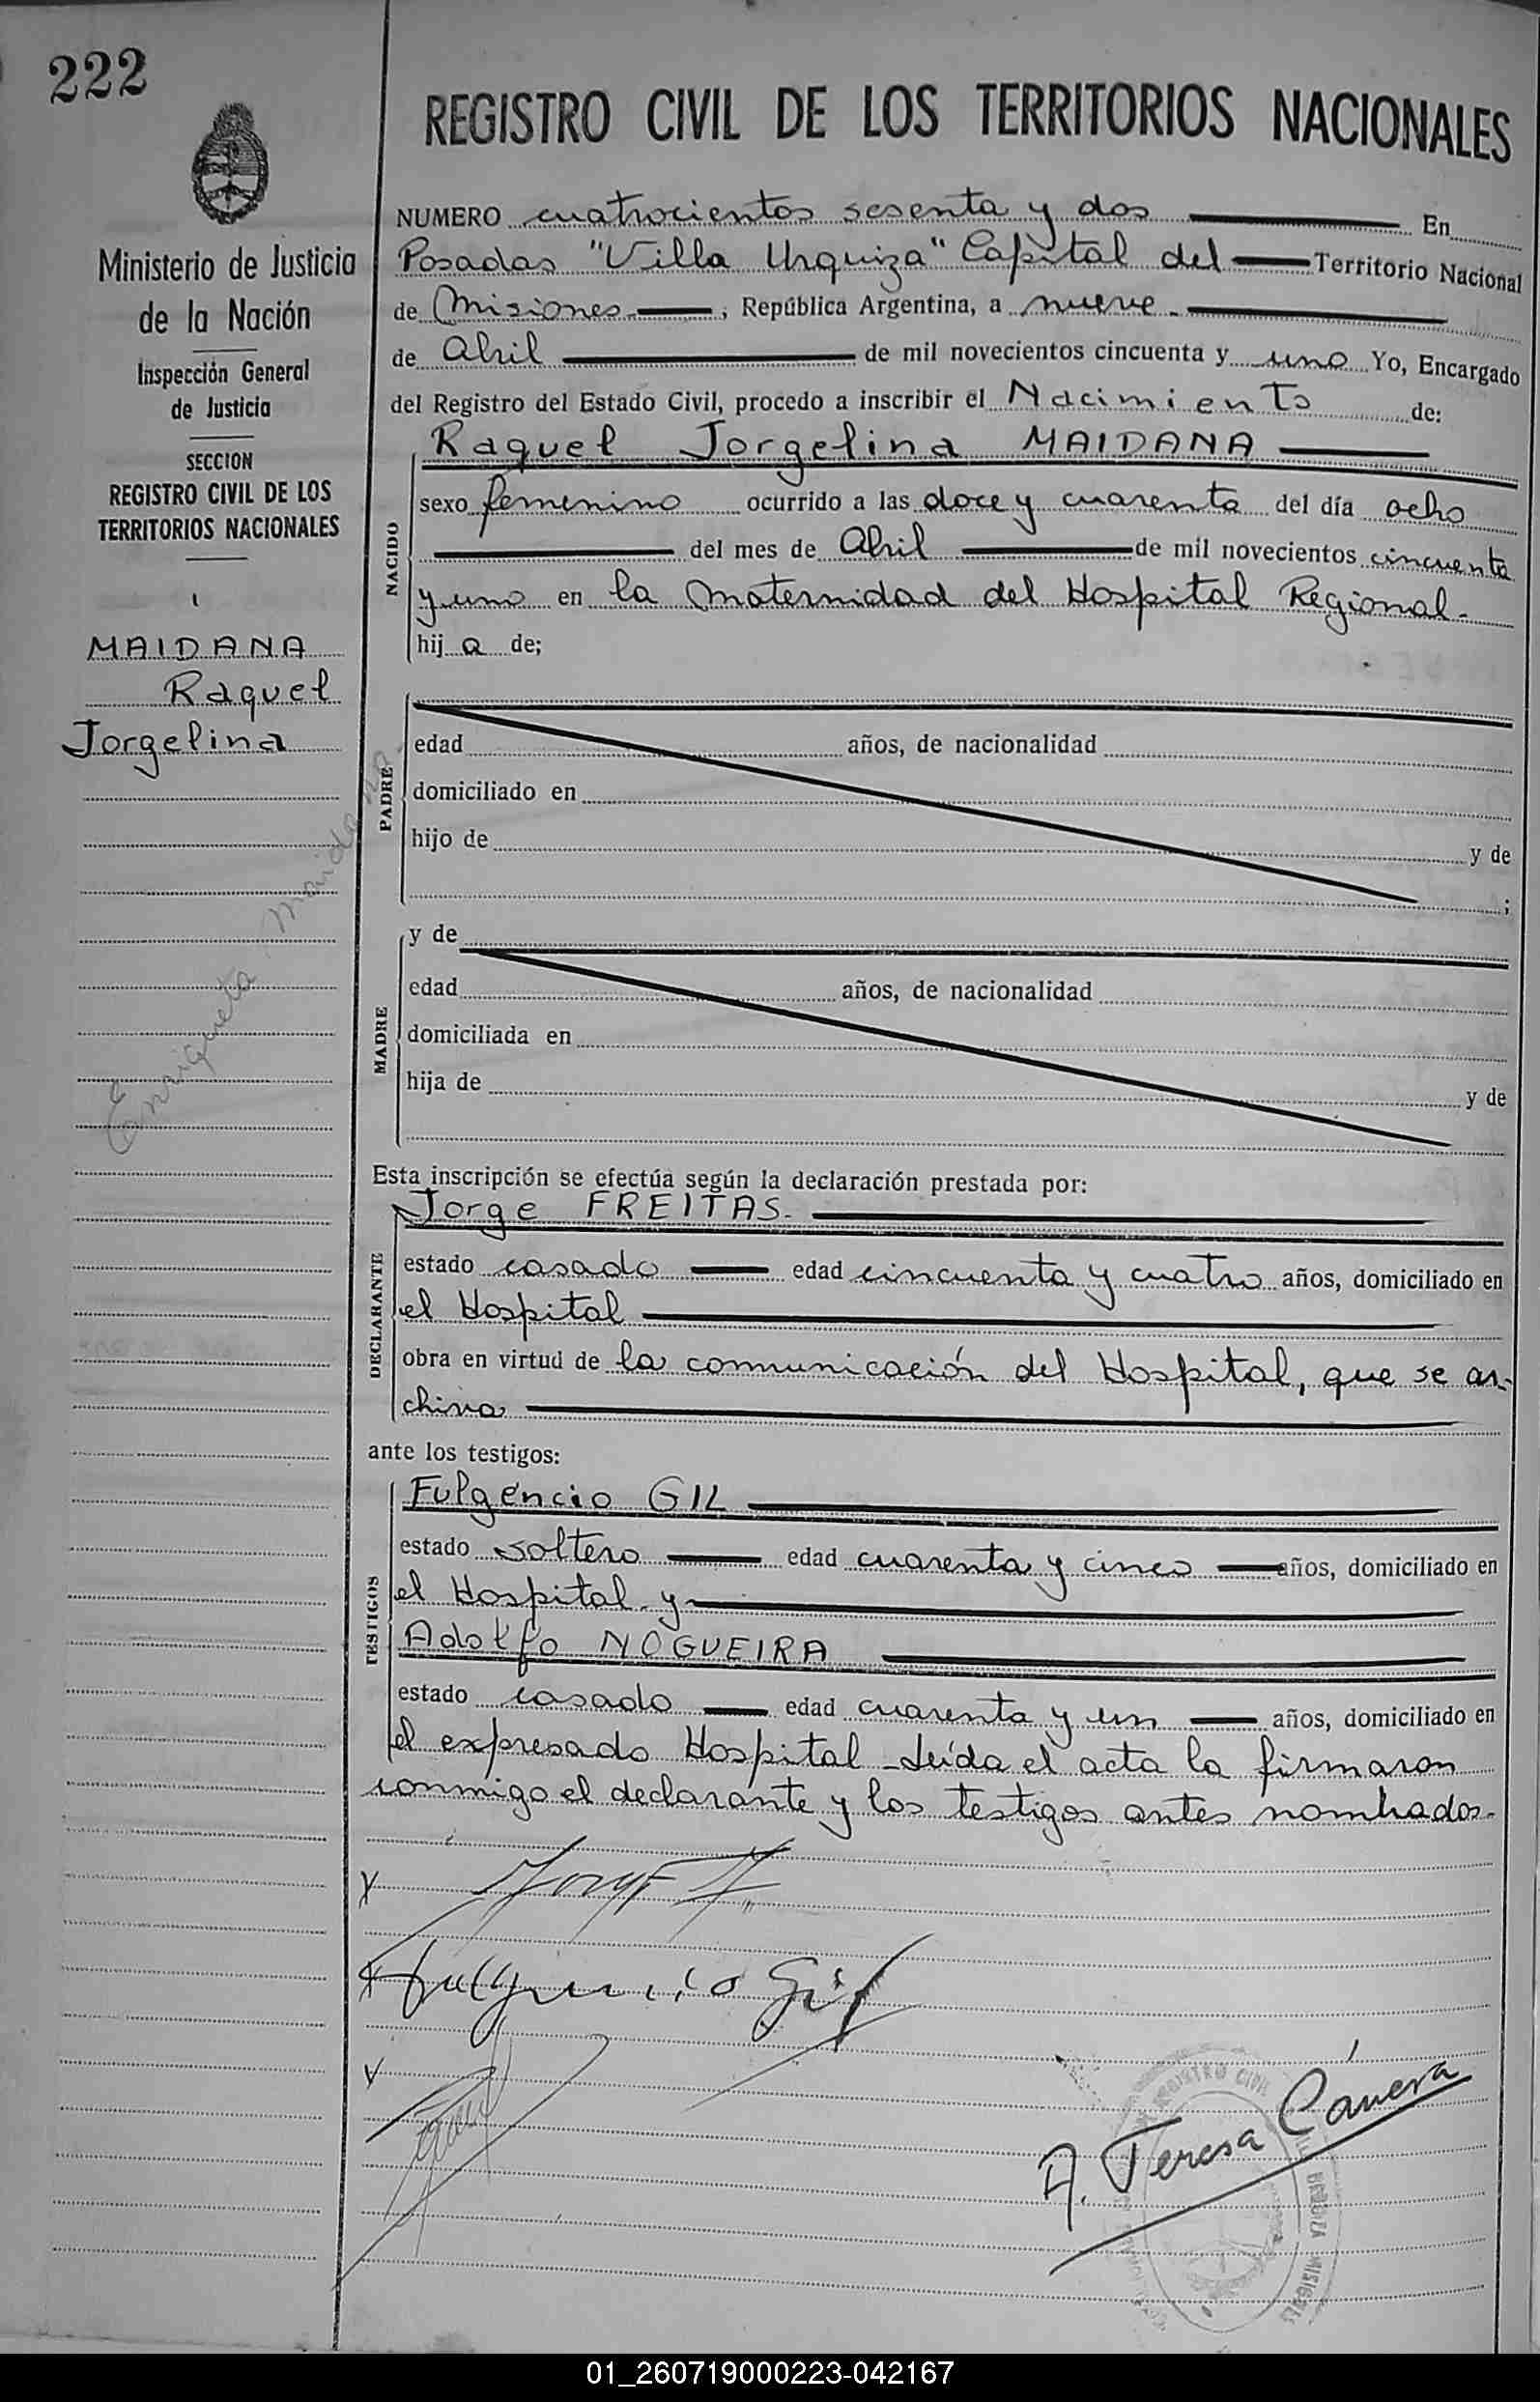 222
REGISTRO CIVIL DE LOS TERRITORIOS NACIONALES
Ministerio de Justicia
de la Nación
Inspección General
de Justicia
SECCION
REGISTRO CIVIL DE LOS
TERRITORIOS NACIONALES
MAIDANA
Raquel
Jorgelina
Enriqueta Maidana
NUMERO cuatrocientos sesenta y dos En
Posadas "Villa Urquiza" Capital del Territorio Nacional
de Misiones , República Argentina, a nueve
de Abril de mil novecientos cincuenta y uno Yo, Encargado
del Registro del Estado Civil, procedo a inscribir el Nacimiento de:
NACIDO
Raquel Jorgelina MAIDANA
sexo femenino ocurrido a las doce y cuarenta del día ocho
del mes de Abril de mil novecientos cincuenta
y uno en la Maternidad del Hospital Regional.
hij a de;
PADRE
edad años, de nacionalidad
domiciliado en
hijo de y de
;
MADRE
y de
edad años, de nacionalidad
domiciliada en
hija de y de
Esta inscripción se efectúa según la declaración prestada por:
DECLARANTE
Jorge FREITAS.
estado casado edad cincuenta y cuatro años, domiciliado en
el Hospital
obra en virtud de la comunicación del Hospital, que se ar-
chiva
ante los testigos:
TESTIGOS
Fulgencio GIL
estado soltero edad cuarenta y cinco años, domiciliado en
el Hospital y
Adolfo NOGUEIRA
estado casado edad cuarenta y un años, domiciliado en
el expresado Hospital - Leída el acta la firmaron
conmigo el declarante y los testigos antes nombrados.
Fulgencio Gil
A. Teresa Cánera
REGISTRO CIVIL
MISIONES
01_260719000223-042167